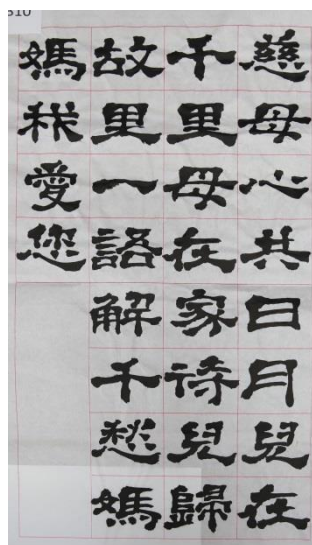 慈母心共日月兒在
千里母在家待兒歸
故里一語解千愁媽
媽我愛您